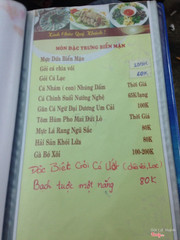 Kính Chào Quý Khách!
MÓN ĐẶC TRƯNG BIỂN MẶN
Mực Dừa Biển Mặn
Gỏi sò chùa vải
Gỏi Cá Lạc
Cá Nhám ( om) Nhúng Dấm Thời Giá
Cá Chình Suối Nướng Nghệ
Gân Cá Ngừ Đại Dương Um Cải 100K
Tôm Hùm Pho Mai Đút Lò Thời Giá
Mực Lá Rang Ngũ Sắc 80K
Hải Sản Khói Lửa 80K
Gà Bó Xôi
Đặc Biệt Gỏi Cá
Bạch tuộc một nắng 80K